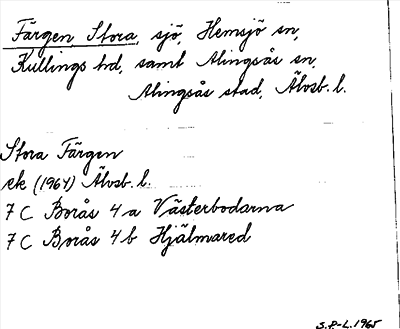 Färgen Stora, sjö, Hemsjö sn,
Kullings hd, samt Alingsås sn,
Alingsås stad, Älvsb. l.
Stora Färgen
ek (1964) Älvsb. l.
7 C Borås 4 a Västerbodarna
7 C Borås 4 b Hjälmared
S.P-L. 1965